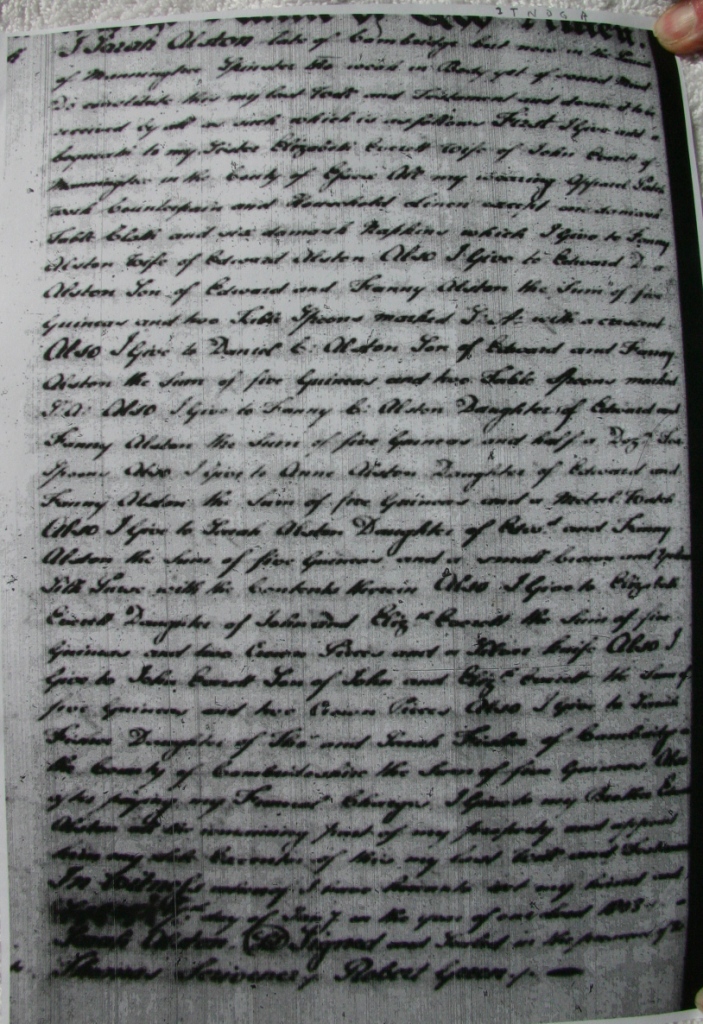 I Sarah Alston late of Cambridge but now in the
of Mannington Spinster tho weak in Body yet of sound Mind
Do constitute this my last Will and Testament and desire it to be
received by all as such which is as follows First I Give and
bequeath to my Sister Elizabeth Everett wife of John Everett of
Mannington in the County of All my wearing Apparel
Counterpain and Household Linen except one damask
Table Cloth and six damask Napkins which I Give to Fanny
Alston Wife of Edward Alston Also I Give to Edward D
Alston Son of Edward and Fanny Alston the Sum of five
Guineas and two Table Spoons marked with a crescent
Also I Give to Daniel C: Alston Son of Edward and Fanny
Alston the Sum of five Guineas and two Table Spoons marked
Also I Give to Fanny C: Alston Daughter of Edward and
Fanny Alston the Sum of five Guineas and half a Dozn Tea
Spoons Also I Give to Anne Alston Daughter of Edward and
Fanny Alston the Sum of five Guineas and a Metal Watch
Also I Give to Sarah Alston Daughter of Edwd and Fanny
Alston the Sum of five Guineas and a small brown and
Silk Purse with the Contents therein Also I Give to Elizabeth
Everett Daughter of John and Elizth Everett the Sum of five
Guineas and two Crown Pieces and a Silver knife Also I
Give to John Everett Son of John and Elizth Everett the Sum of
five Guineas and two Crown Pieces Also I Give to Sarah
Daughter of Tho and Sarah of Cambridge
the County of Cambridgeshire the Sum of five Guineas Also
after paying my Funeral Charges I Give to my Brother Edward
Alston all the remaining part of my property and appoint
him my sole Executor of this my last Will and Testament
In Witness whereof I have hereunto set my hand and
day of Jan in the year of our Lord 1803
Sarah Alston Signed and Sealed in the presence of
Thomas Scrivener Robert Green